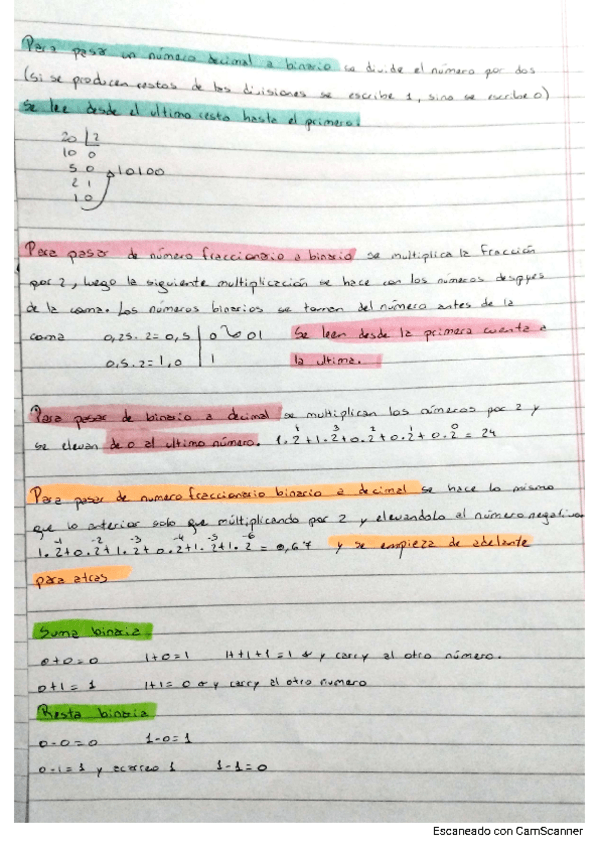 Para pasar un número decimal a binario se divide el número por dos
(si se producen restos de las divisiones se escribe 1, sino se escribe 0)
Se lee desde el ultimo resto hasta el primero.
20 | 2
10 0
5 0 10100
2 1
1 0
Para pasar de número fraccionario a binario se multiplica la Fracción
por 2, luego la siguiente multiplicación se hace con los números despues
de la coma. Los números binarios se toman del número antes de la
coma 0,25.2=0,5 | 0 01 Se leen desde la primera cuenta a
0,5.2=1,0 | 1 la ultima.
Para pasar de binario a decimal se multiplican los números por 2 y
se elevan de 0 al ultimo número. 1.2⁴+1.2³+0.2²+0.2¹+0.2⁰ = 24
Para pasar de numero fraccionario binario a decimal se hace lo mismo
que lo anterior solo que múltiplicando por 2 y elevandolo al número negativo
1.2⁻¹+0.2⁻²+1.2⁻³+0.2⁻⁴+1.2⁻⁵+1.2⁻⁶ = 0,67 y se empieza de adelante
para atras
Suma binaria
0+0=0 1+0=1 1+1+1=1 y carry al otro número.
0+1=1 1+1=0 y carry al otro numero
Resta binaria
0-0=0 1-0=1
0-1=1 y acarreo 1 1-1=0
Escaneado con CamScanner